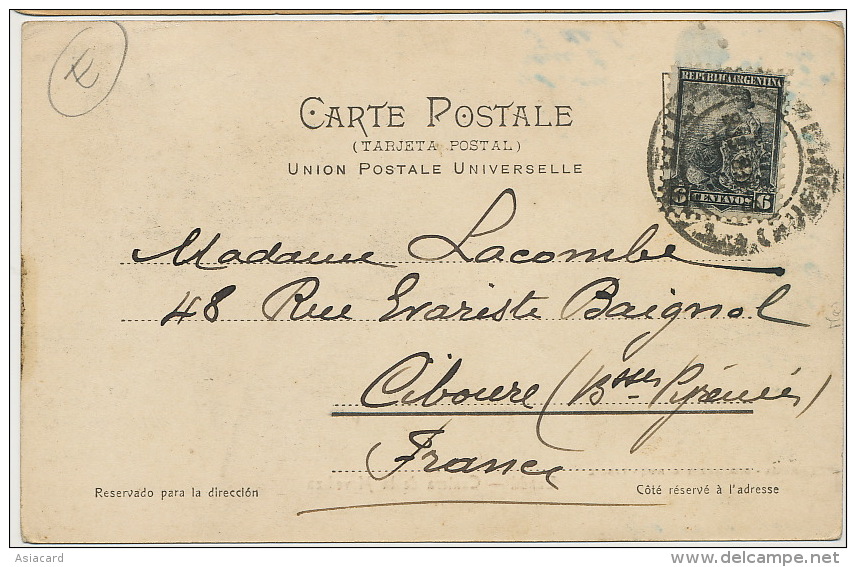 E
REPUBLICA ARGENTINA
CARTE POSTALE
(TARJETA POSTAL)
UNION POSTALE UNIVERSELLE
6 CENTAVOS 6
Madame Lacombe
48 Rue Evariste Baignol
Ciboure (Bsses Pyrénées)
France
Reservado para la dirección
Côté réservé à l'adresse
Asiacard
delcampe.net